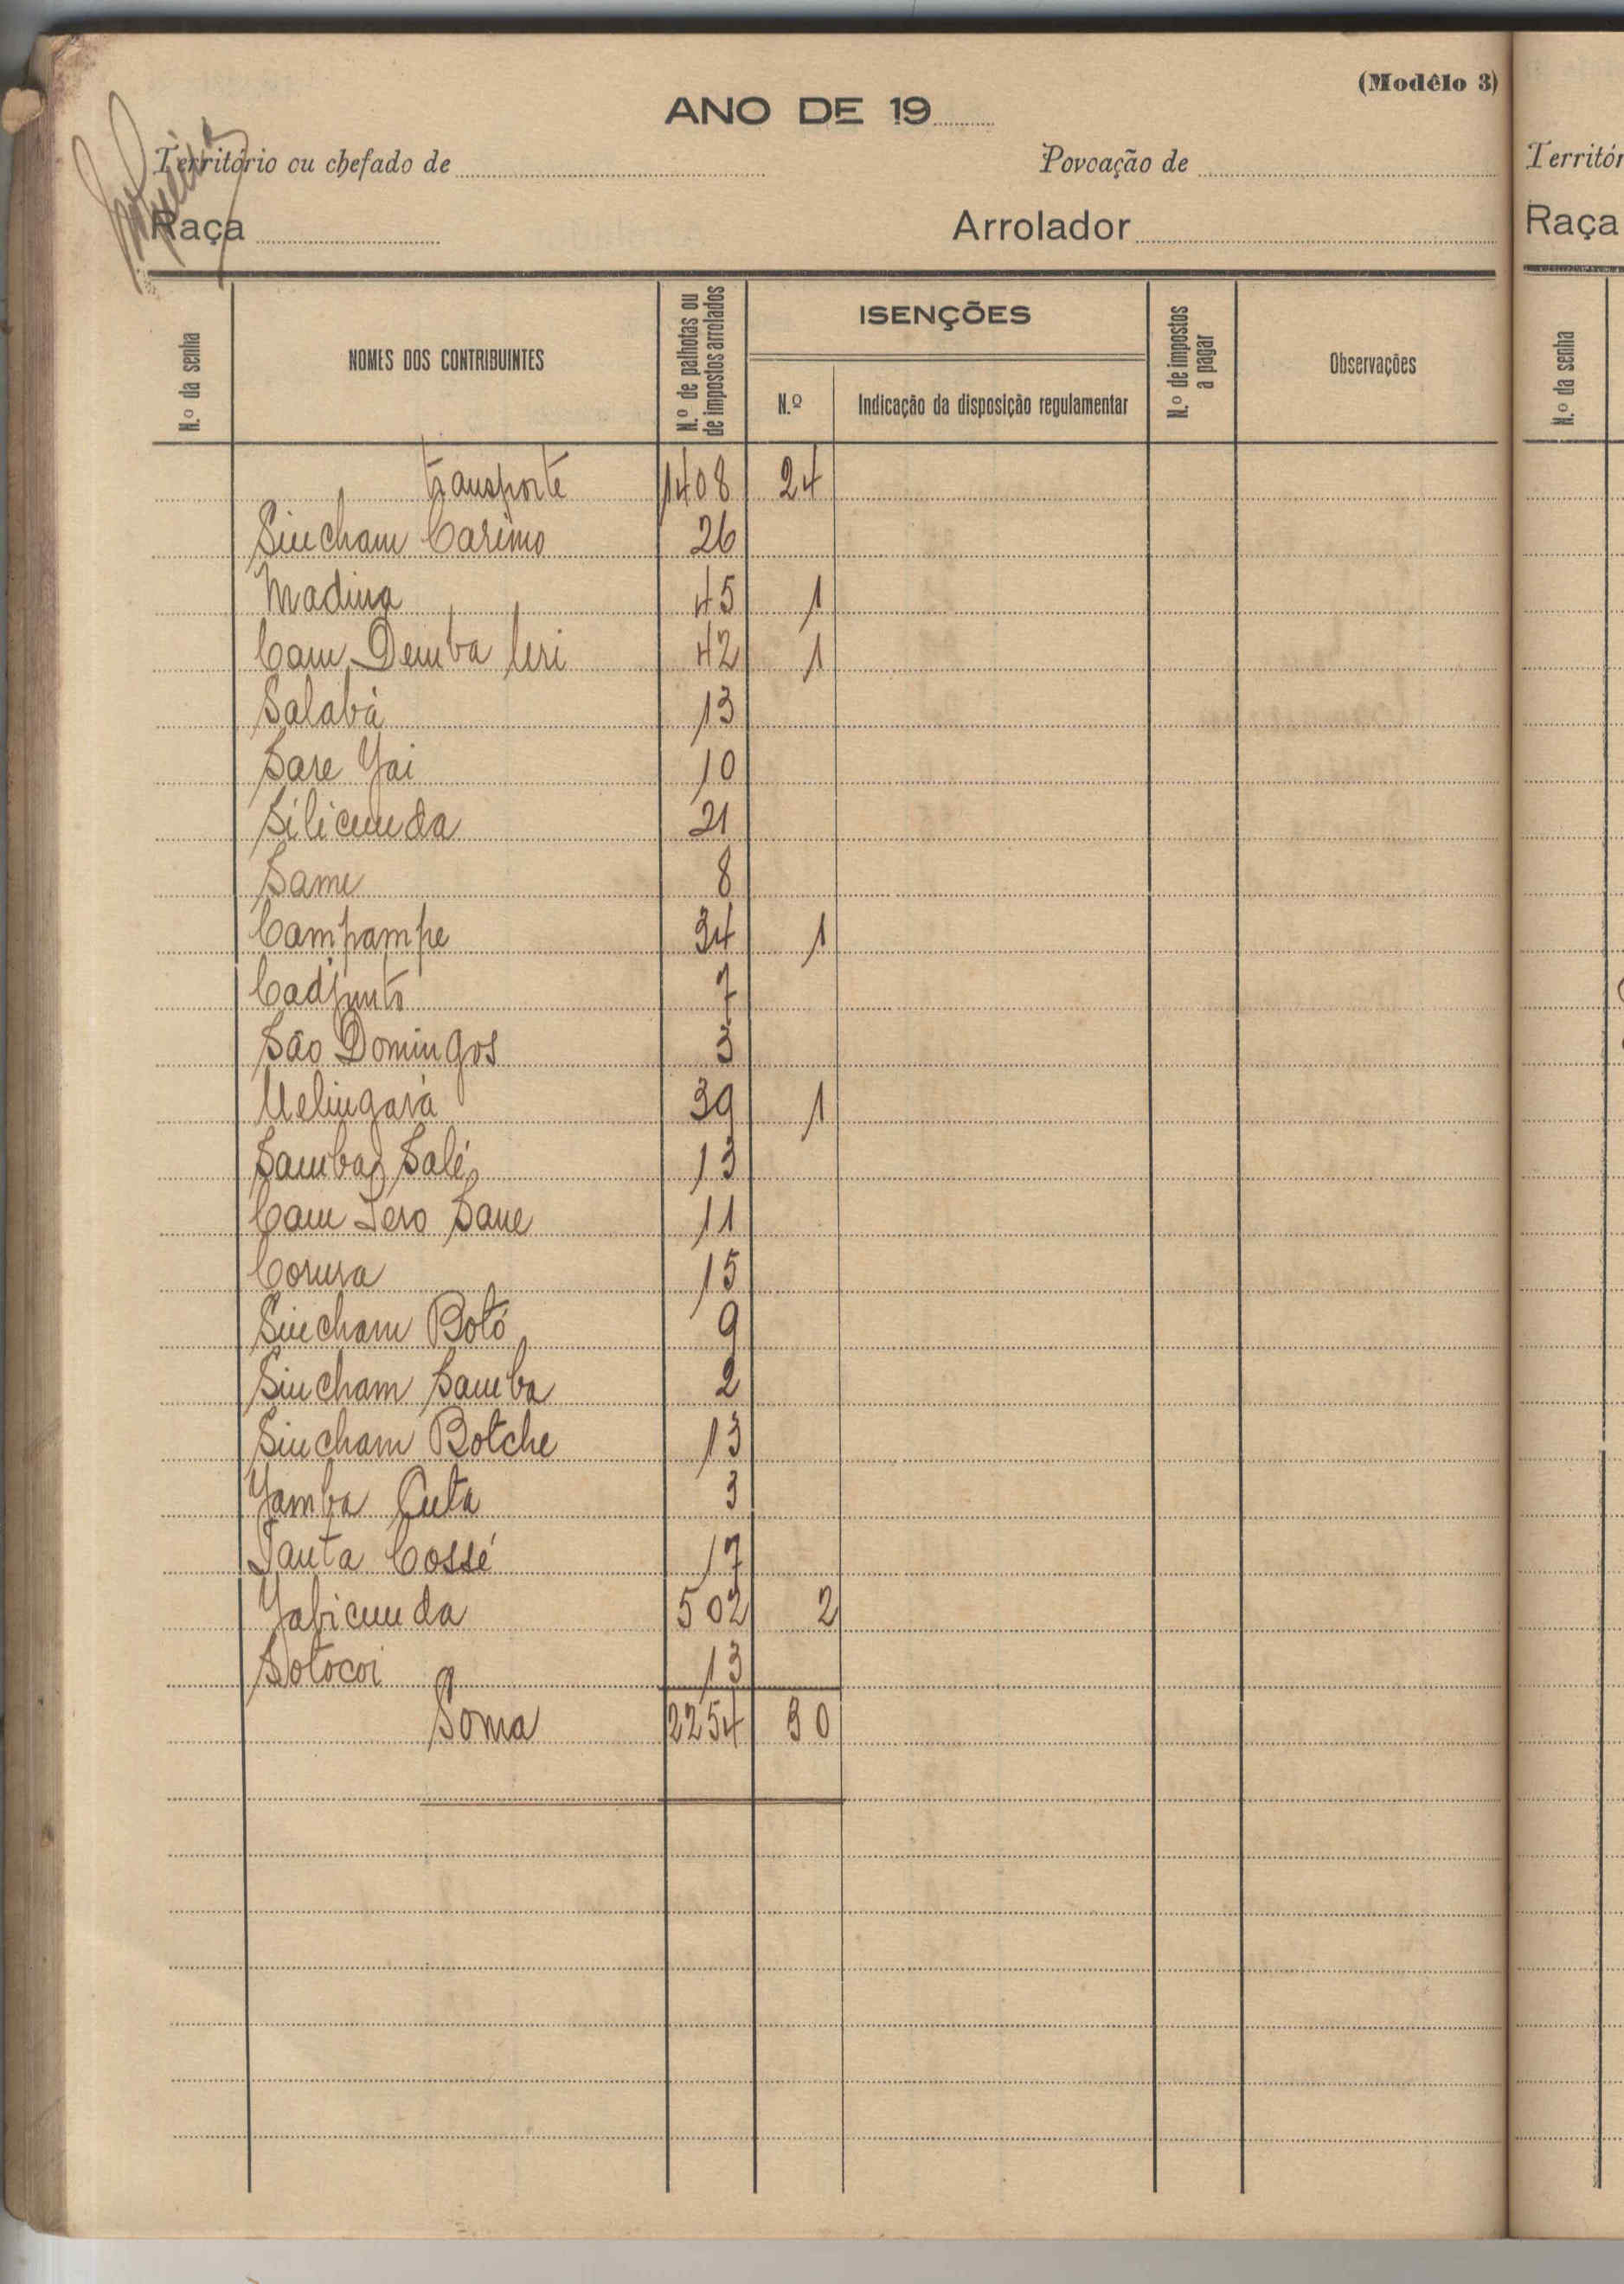 (Modêlo 3)
ANO DE 19
Território ou chefado de Povoação de
Raça Arrolador
N.º da senha NOMES DOS CONTRIBUINTES N.º de palhotas ou de impostos arrolados ISENÇÕES N.º Indicação da disposição regulamentar N.º de impostos a pagar Observações
transporte 1408 24
Sincham Carimo 26
Madina 45 1
Cam Demba Uri 42 1
Salabá 13
Sare Yai 10
Silicunda 21
Same 8
Campampe 34 1
Cadjunto 7
São Domingos 3
Uelingará 39 1
Samba Salé 13
Cam Sero Sane 11
Corura 15
Sincham Botó 9
Sincham Samba 2
Sincham Botche 13
Yamba Cuta 3
Tanta Cossé 17
Yabicunda 502 2
Sotocoi 13
Soma 2254 30
Territór
Raça
N.º da senha